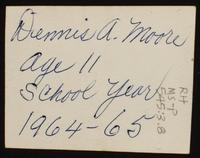 Dennis A. Moore
Age 11
School Year
1964-65
RH
MS-P
545:3.8